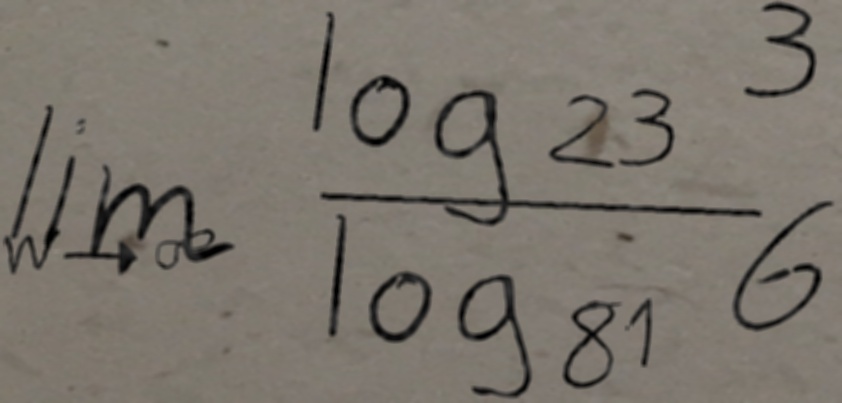 lim_{n→∞} \frac{log_{23} 3}{log_{81} 6}